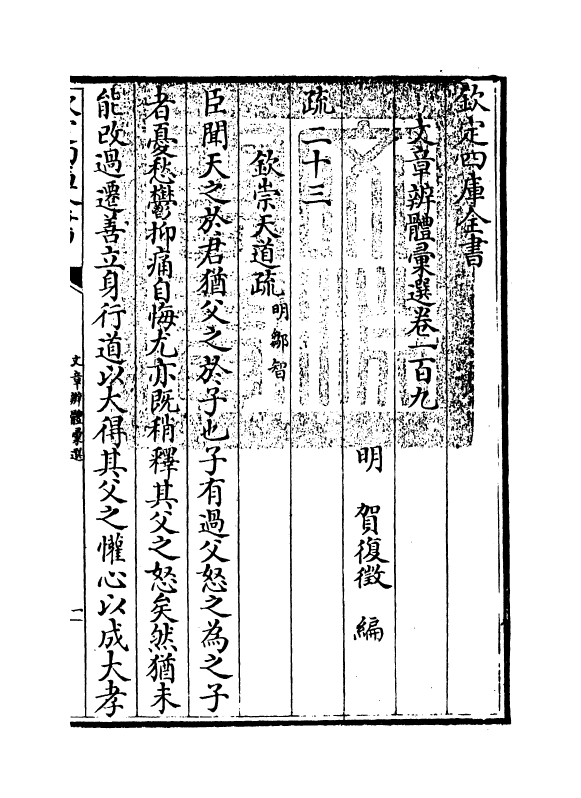 欽定四庫全書
文章辨體彚選卷一百九
明 賀復徵 編
疏二十三
欽崇天道疏明鄒智
臣聞天之於君猶父之於子也子有過父怒之為之子
者憂愁鬱抑痛自悔尤亦既稍釋其父之怒矣然猶未
能改過遷善立身行道以大得其父之懽心以成大孝
文章辨體彚選
一